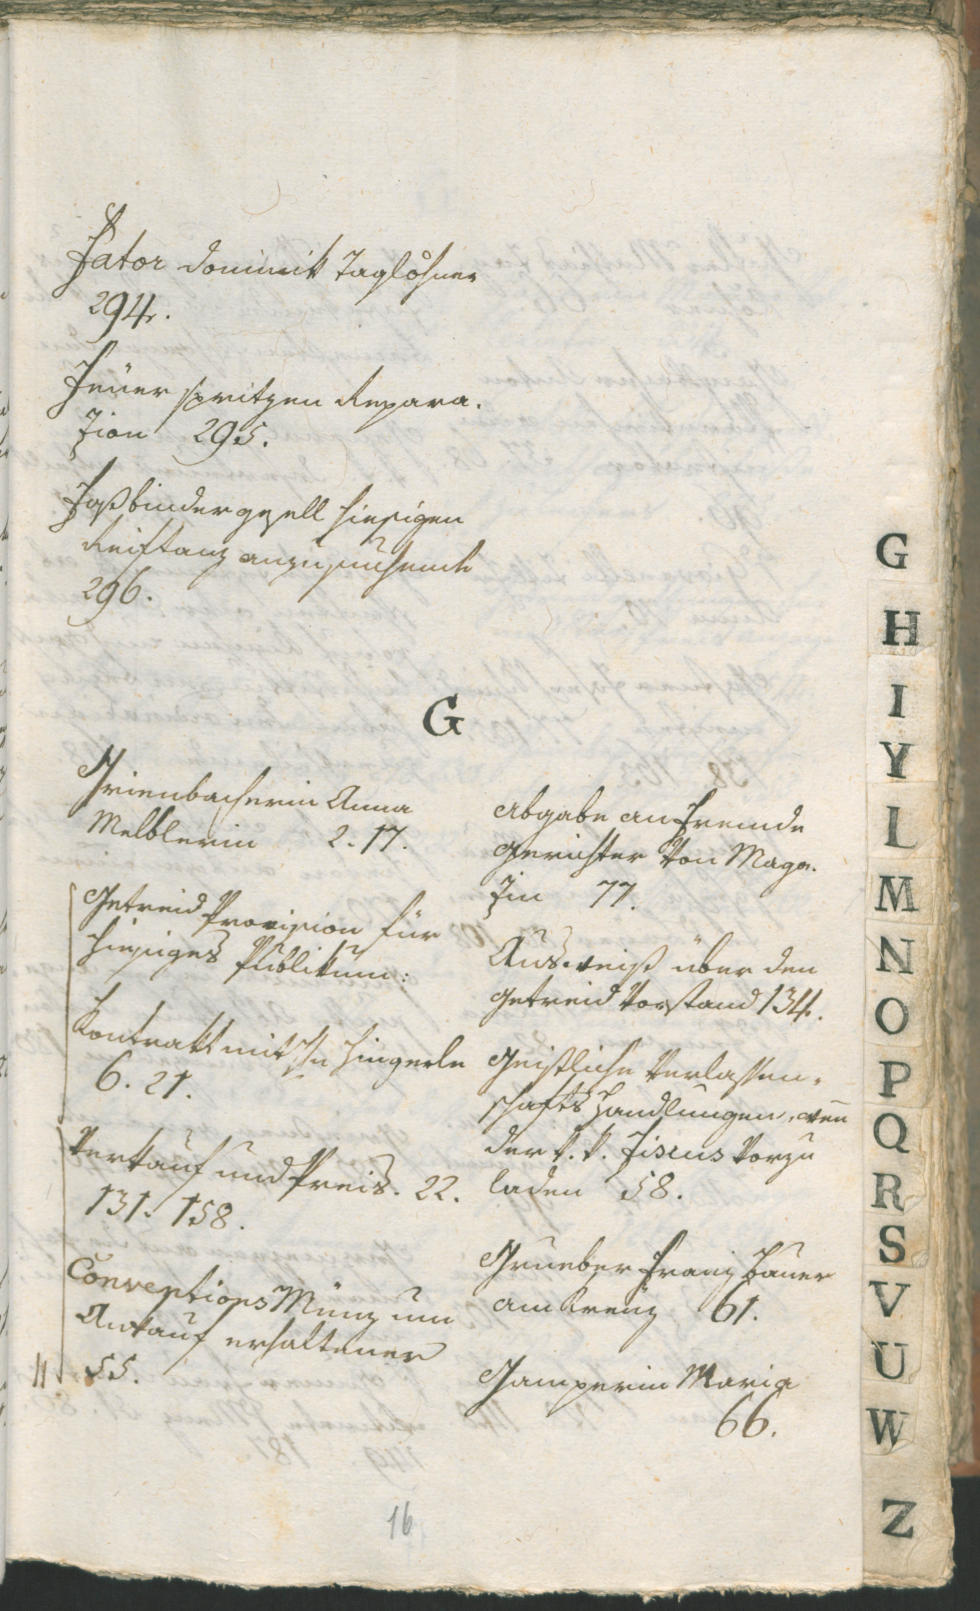 Fator Dominik Taglöhner
294.
Feüer spritzen Repara.
zion 295.
Faßbindergesell hiesigen
Reiftanz
296.
G
Grienbacherin Anna
Melblerin 2. 17.
Getreid Provision für
hiesiges Publikum:
Kontrakt mit Hn Hingerle
6. 21.
Verkauf und Preis. 22.
131. 158.
Convents Münz um
Ankauf erhaltener
55.
Abgabe an Fremde
Gerichter von Maga.
zin 77.
Ausweiß über den
Getreid Vorstand 134.
Geistliche Verlassen,
schafts Handlungen, wen
der k. k. Fiscus vorzu
laden 58.
Grueber Franz Bauer
am Kreuz 61.
Gamperin Maria
66.
16
G
H
I
Y
L
M
N
O
P
Q
R
S
V
U
W
Z